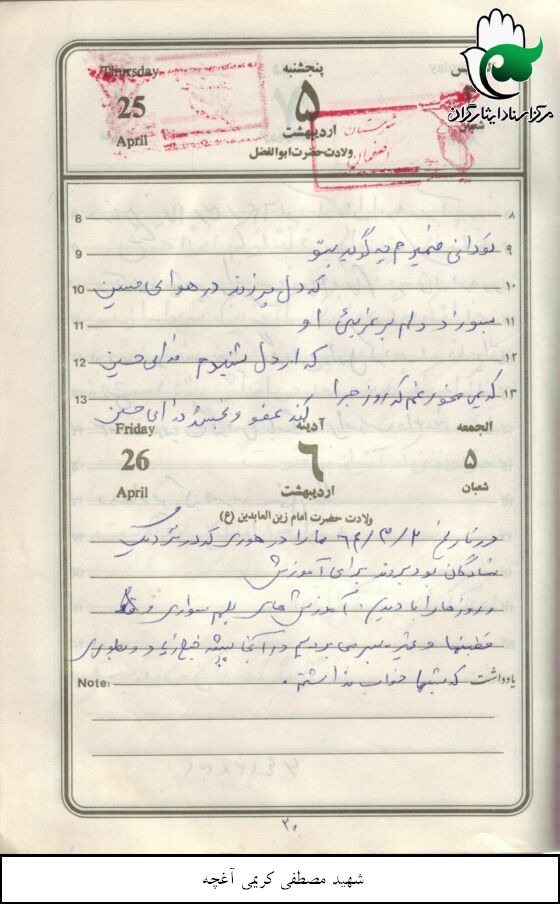 مرکز اسناد ایثارگران
Thursday
25
April
پنجشنبه
۵
اردیبهشت
ولادت حضرت ابوالفضل
شعبان
شهرستان
اصفهان
8 ۸
9 تو دانی ضمیرم چه گوید بتو ۹
10 که دل پر زند در هوای حسین ۱۰
11 بسوزد دلم بر غریبی او ۱۱
12 که از دل شنیدم ندای حسین ۱۲
13 کریمی مخور غم که روز جزا ۱۳
کند عفو و بخشد خدای حسین
Friday
26
April
آدینه
۶
اردیبهشت
الجمعه
۵
شعبان
ولادت حضرت امام زین العابدین (ع)
در تاریخ ۶۴/۳/۲ ما را در هوری که در نزدیک
شادگان بود بردند برای آموزش
و روزها را با دیدن آموزش های بلم سواری و
و غیره بسر می بردیم در آنجا پشه خیلی زیاد و بطوری
Note: که شبها خواب نداشتیم . یادداشت
۳۰
شهید مصطفی کریمی آغچه